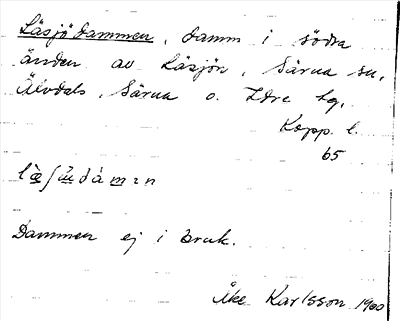 Läsjödammen, damm i södra
änden av Läsjön, Särna sn,
Älvdals, Särna o. Idre tg,
Kopp. l.
65
Dammen ej i bruk.
Åke Karlsson 1900